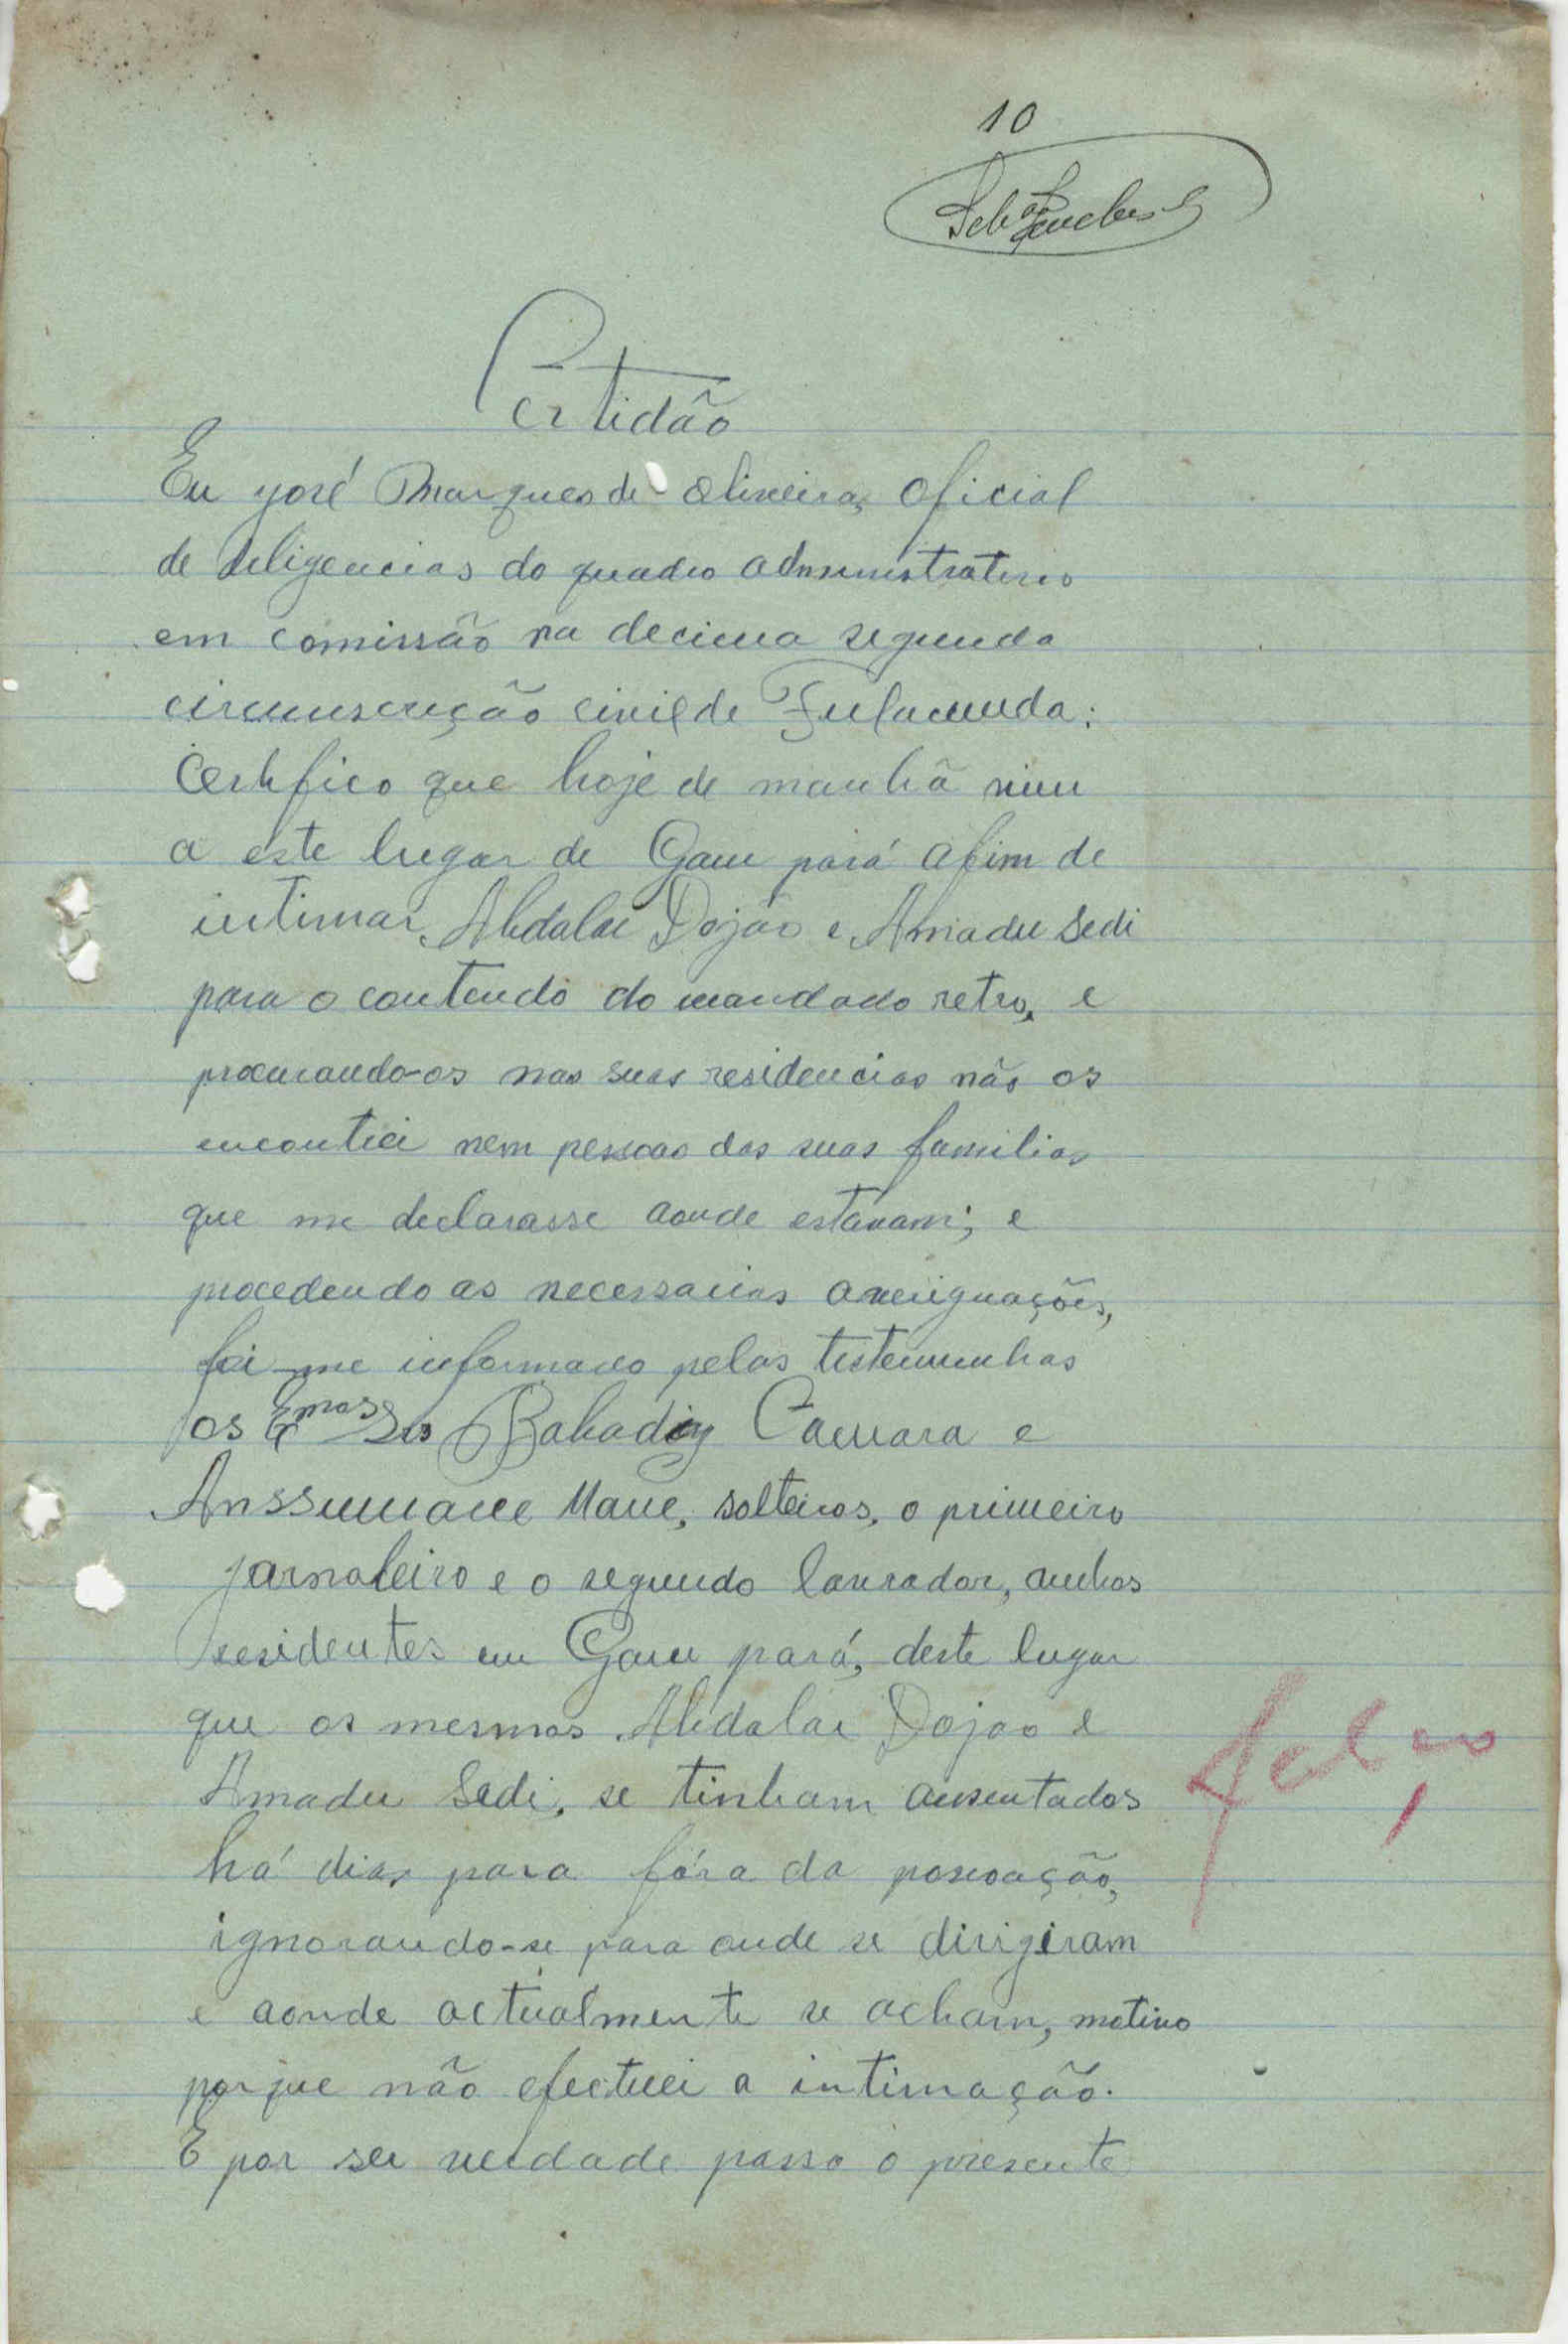 10
Certidão
Eu José Marques de Oliveira, Oficial
de deligencias do quadro administrativo
em comissão na decima segunda
circunscrição civil de Fulacunda:
Certifico que hoje de manhã vim
a este lugar de Gam pará afim de
intimar, Abdalai Dojão e Amadu Sedi
para o contendo do mandado retro, e
procurando-os nas suas residencias não os
encontrei nem pessoas das suas familias
que me declarasse aonde estavam; e
procedendo as necessarias averiguações,
foi-me informado pelas testemunhas
os Exmos Srs Camara e
Anssumane Mane, solteiros, o primeiro
jornaleiro e o segundo lavrador, ambos
residentes em Gam pará, deste lugar
que os mesmos Abdalai Dojao e
Amadu Sedi, se tinham ausentados
há dias para fóra da povoação,
ignorando-se para onde se dirigiram
e aonde actualmente se acham, motivo
porque não efectuei a intimação.
E por ser verdade passo o presente
falso